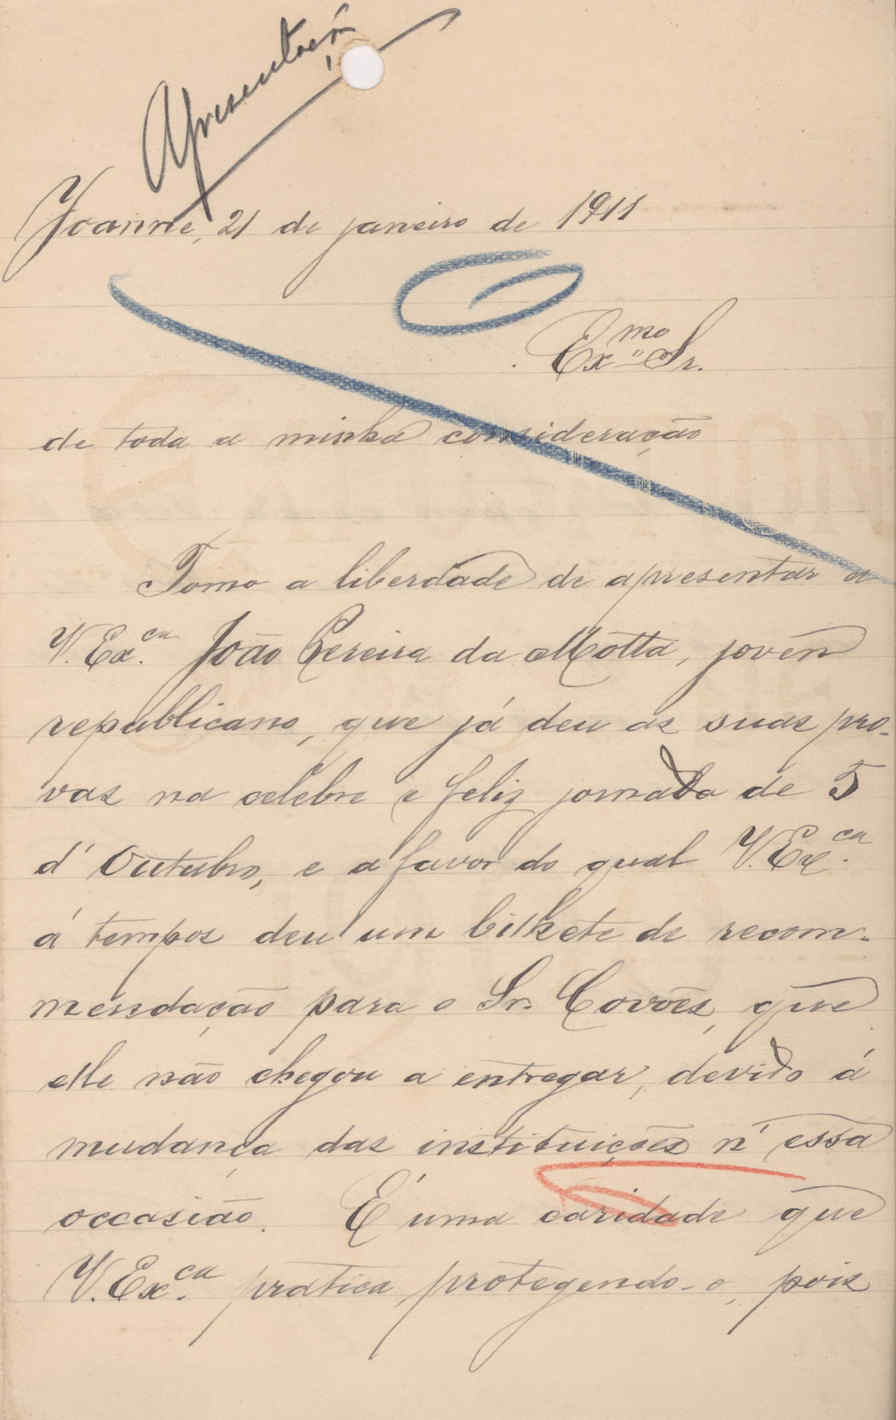 Apresentação
Joanne, 21 de janeiro de 1911
Ex.mo Sr.
de toda a minha consideração
Tomo a liberdade de apresentar a
V. Ex.ca João Pereira da Motta, joven
republicano, que já deu as suas pro-
vas na celebre e feliz jornada de 5
d' Outubro, e a favor do qual V. Ex.ca
á tempos deu um bilhete de recom-
mendação para o Sr. Covões, que
elle não chegou a entregar, devido á
mudança das instituições n' essa
occasião. É uma caridade que
V. Ex.ca pratica, protegendo-o, pois